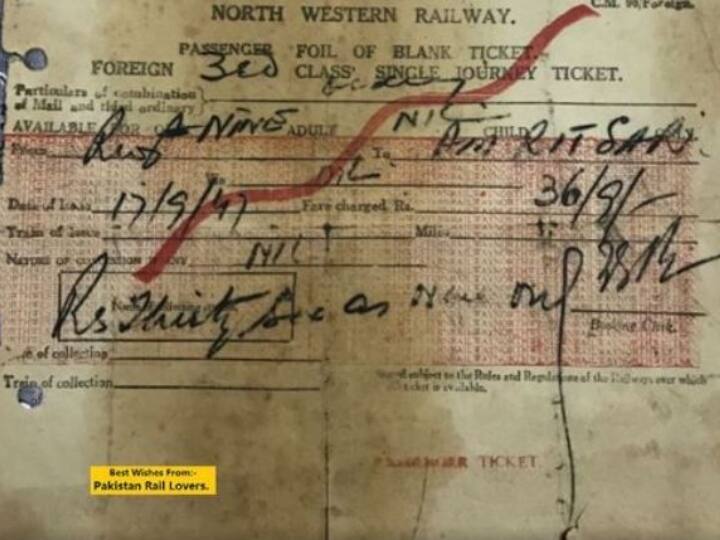 C.M. 90/Foreign.
NORTH WESTERN RAILWAY.
PASSENGER FOIL OF BLANK TICKET.
FOREIGN 3rd CLASS SINGLE JOURNEY TICKET.
Particulars of combination
of Mail and third ordinary
AVAILABLE FOR NINE ADULT NIL CHILD
From To AMRITSAR
Via NIL
Date of Issue 17/9/47 Fare charged Rs. 36/9/-
Train of issue Miles
NATURE OF CONCESSION IF ANY NIL
Rs Thirty Six as Nine only
Booking Clerk.
of collection
Train of collection
Issued subject to the Rules and Regulations of the Railways over which
ticket is available.
PASSENGER TICKET
Best Wishes From:-
Pakistan Rail Lovers.